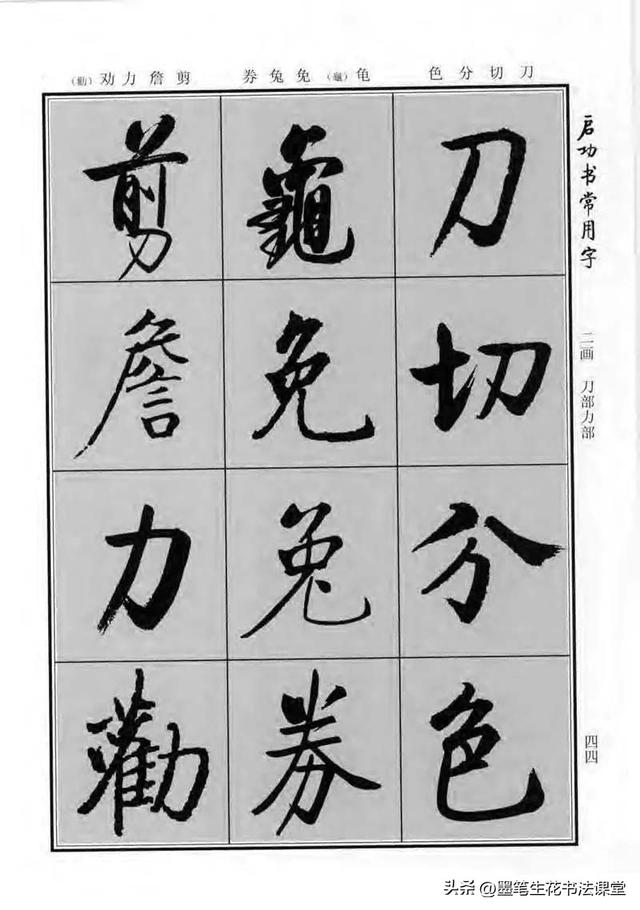 色分切刀
券兔免（龜）龟
（勸）劝力詹剪
启功书常用字
二画 刀部力部
四四
刀
切
分
色
龜
免
兔
券
剪
詹
力
勸
头条 @墨笔生花书法课堂